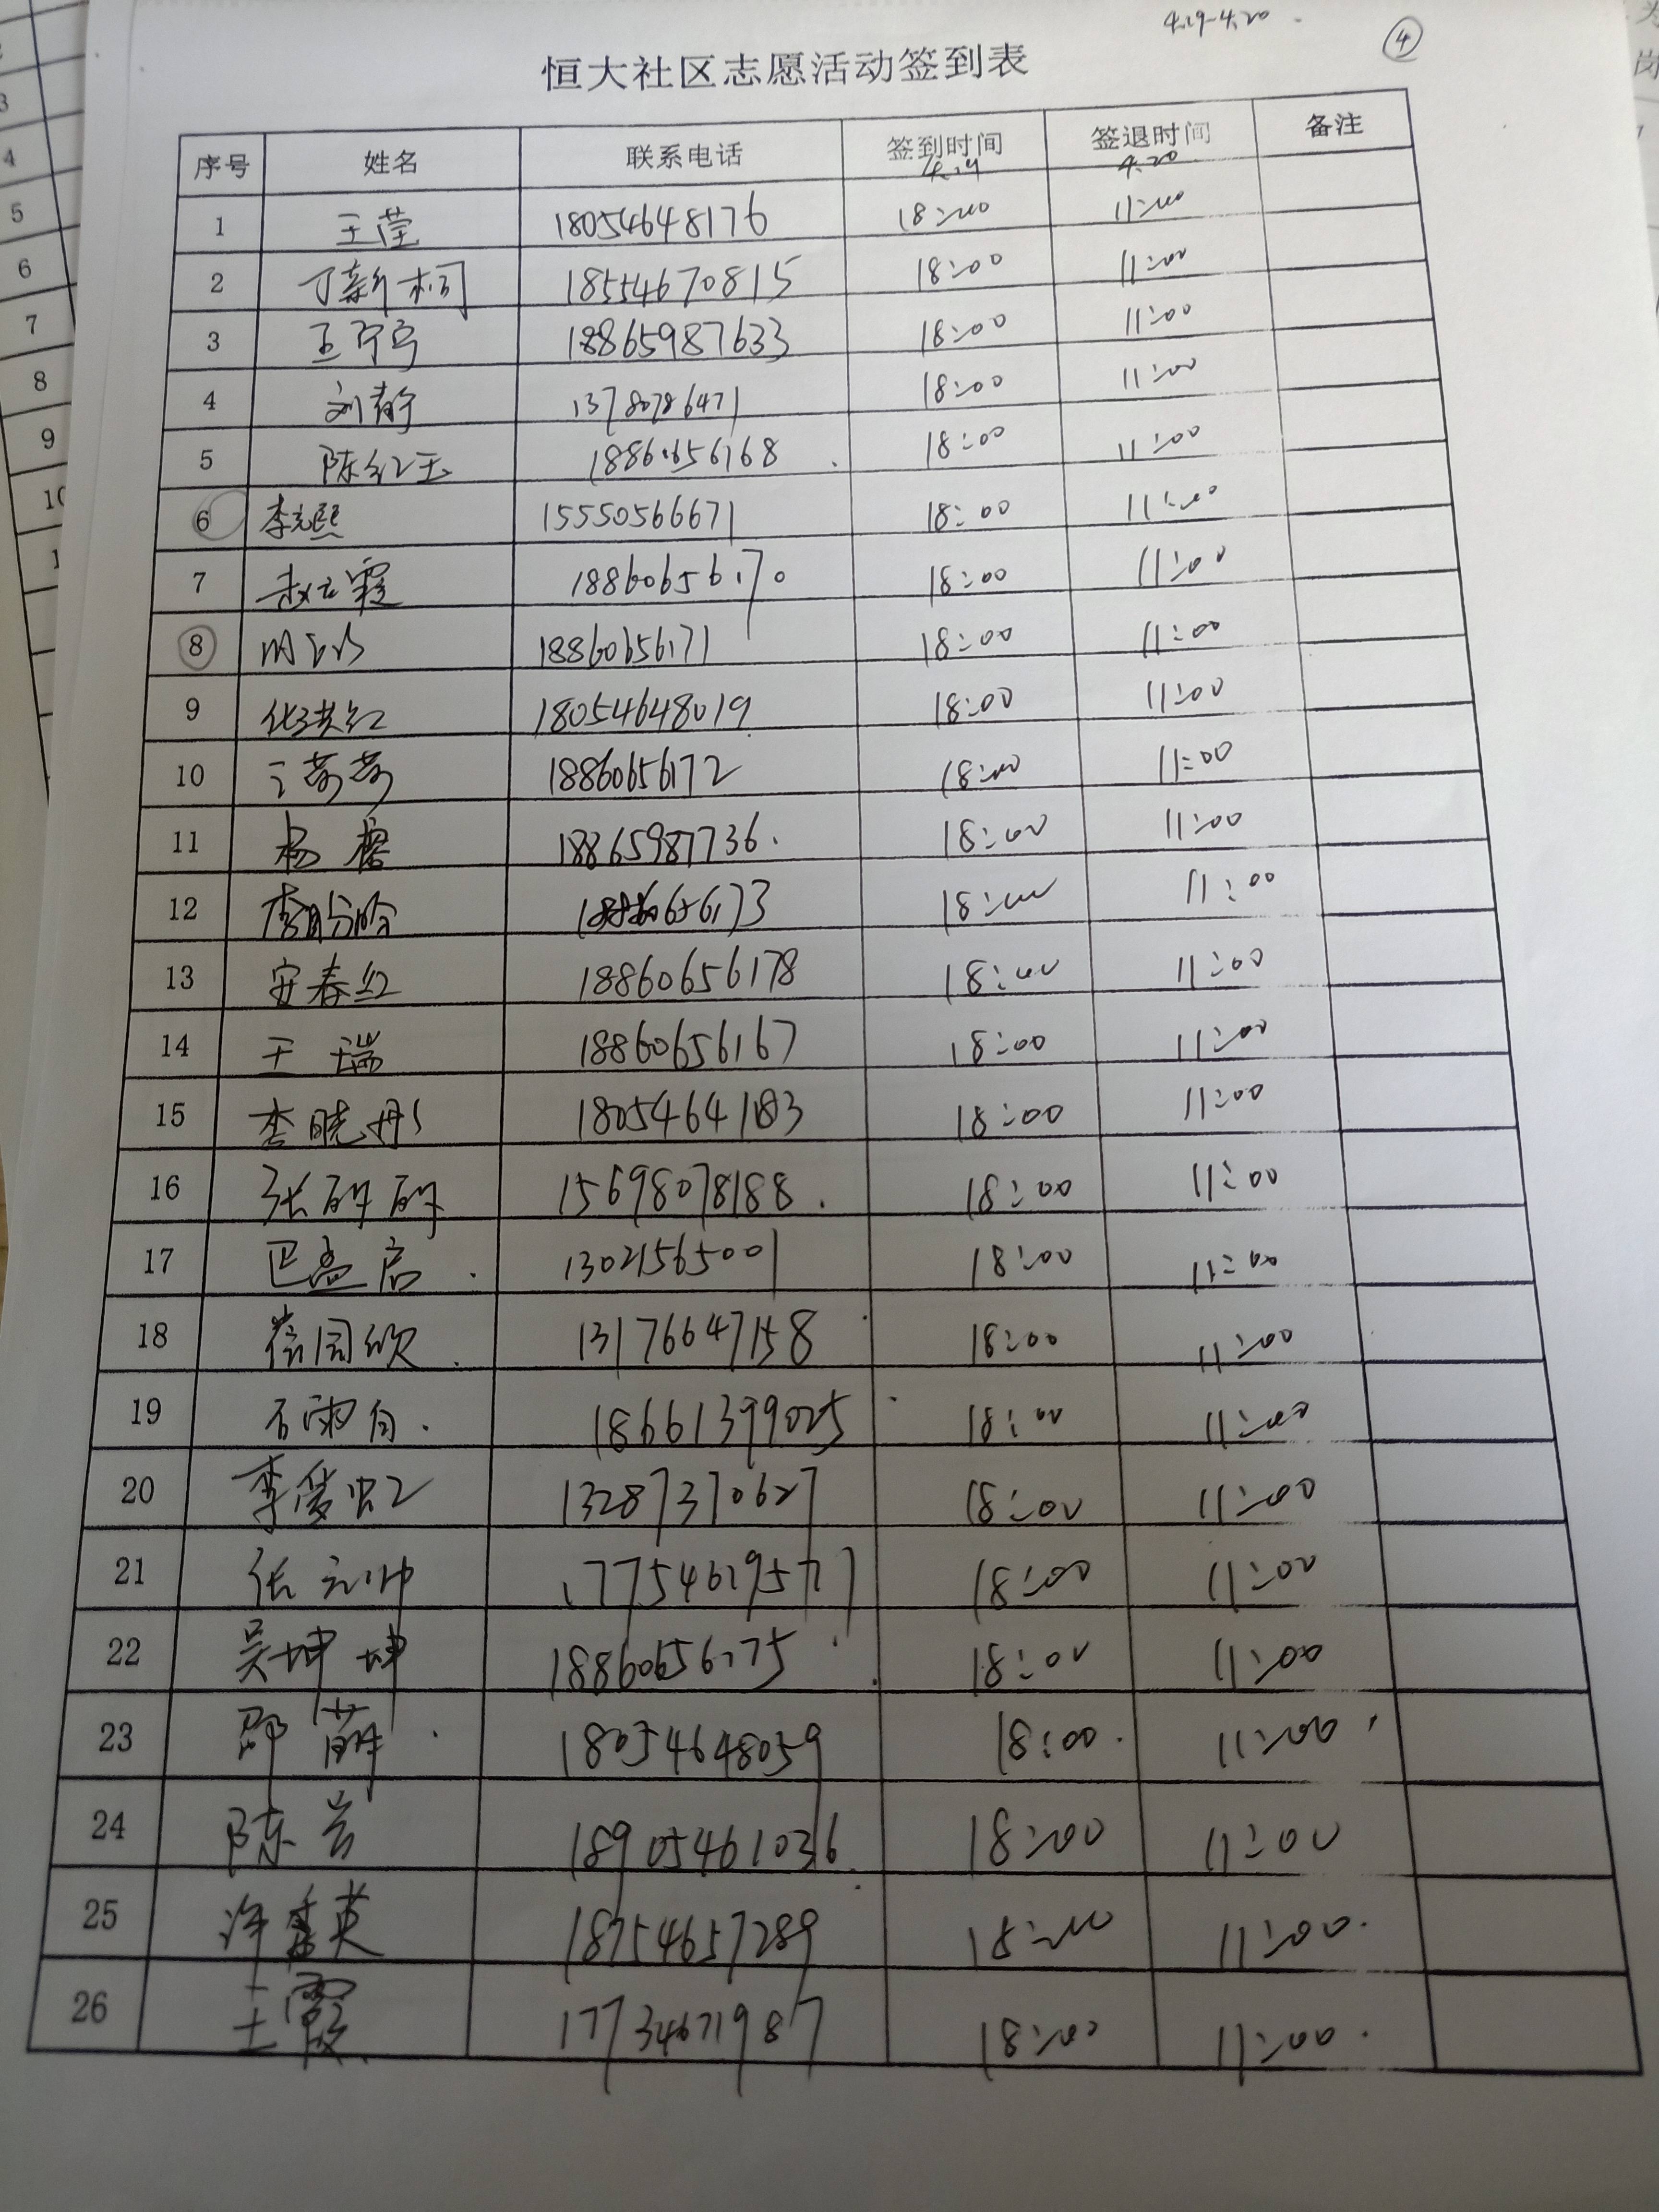 4.19-4.20
④
恒大社区志愿活动签到表
序号 姓名 联系电话 签到时间 4.19 签退时间 4.20 备注
1 王莹 18054648176 18:00 11:00
2 丁新桐 18554670815 18:00 11:00
3 王宁宁 18865987633 18:00 11:00
4 刘静 13780786471 18:00 11:00
5 陈红玉 18860656168 18:00 11:00
6 李元熙 15550566671 18:00 11:00
7 赵云霞 18860656170 18:00 11:00
8 18860656171 18:00 11:00
9 18054648019 18:00 11:00
10 王莉莉 18860656172 18:00 11:00
11 杨榕 18865987736. 18:00 11:00
12 李盼盼 18860656173 18:00 11:00
13 安春红 18860656178 18:00 11:00
14 王瑞 18860656167 18:00 11:00
15 李晓彤 18054641183 18:00 11:00
16 张研研 15698078188. 18:00 11:00
17 巴孟启 13021565001 18:00 11:00
18 13176647158 18:00 11:00
19 18661399025 18:00 11:00
20 李俊虹 13287370627 18:00 11:00
21 张元帅 17754619577 18:00 11:00
22 吴坤坤 18860656175 18:00 11:00
23 邵萌 18054648059 18:00 11:00
24 陈芸 18905461036 18:00 11:00
25 许秀英 18754657289 18:00 11:00
26 王霞 17734671987 18:00 11:00